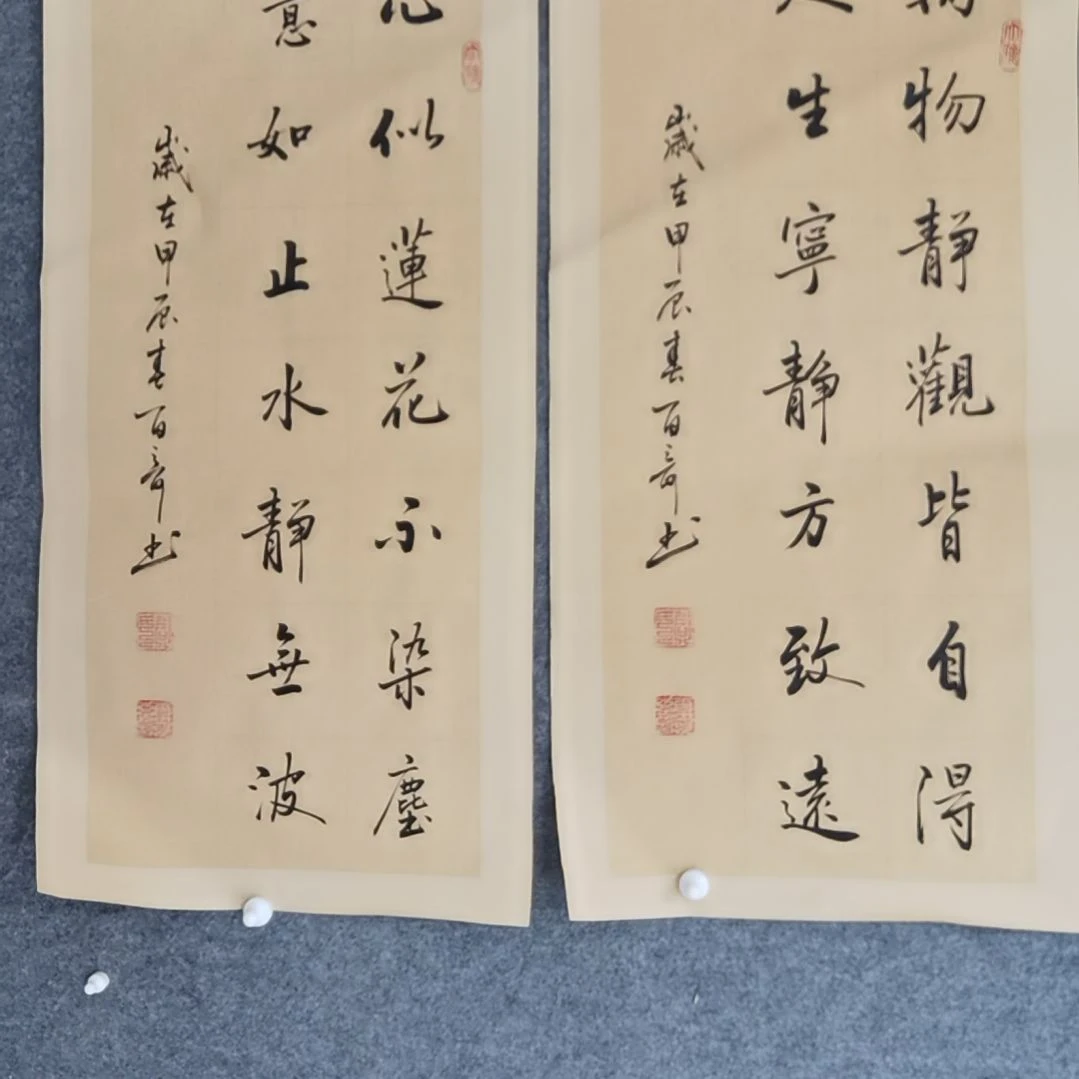 物靜觀皆自得
生寧靜方致遠
歲在甲辰春百奇书
心似蓮花不染塵
意如止水靜無波
歲在甲辰春百奇书